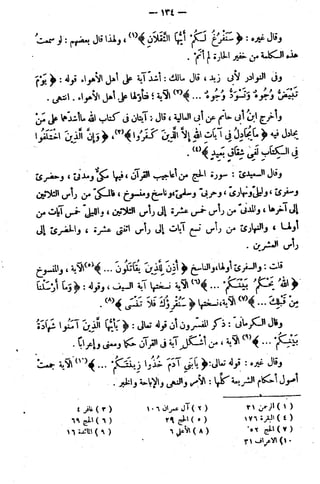 — ١٣٤ —
وقال غيره : ﴿ سَنَفْرُغُ لَكُمْ أَيُّهَا الثَّقَلَانِ ﴾(١) ، ولهذا قال بعضهم : لو سمعتُ
هذه الكلمة من خفير الحارة لم أنم .
وفى النوادر لأبى زيد ، قال مالك : أشد آية على أهل الأهواء قوله : ﴿ يَوْمَ
تَبْيَضُّ وُجُوهٌ وَتَسْوَدُّ وُجُوهٌ ... ﴾(٢) الآية ؛ فتأولها على أهل الأهواء . انتهى .
وأخرج ابن أبى حاتم عن أبى العالية ، قال : آيتان فى كتاب الله ما أشدهما على من
يجادل فيه ﴿ مَا يُجَادِلُ فِى آيَاتِ اللهِ إِلَّا الَّذِينَ كَفَرُوا ﴾(٣)، ﴿ وَإِنَّ الَّذِينَ اخْتَلَفُوا
فِى الْكِتَابِ لَفِى شِقَاقٍ بَعِيدٍ ﴾(٤).
وقال السعيدىّ : سورة الحج من أعاجيب القرآن، فيها مكىّ ومدنىّ، وحضرىّ
وسفرىّ، وليلىّ ونهارىّ، وحربىّ وسلمىّ، وناسخ ومنسوخ ، فالمكىّ من رأس الثلاثين
إلى آخرها، والمدنىّ من رأس خمس عشرة إلى رأس الثلاثين ، والليلىّ خمس آيات من
أولها ، والنهارىّ من رأس تسع آيات إلى رأس اثنتى عشرة ، والحضرىّ إلى
رأس العشرين .
قلت : والسفرىّ أولها، والناسخ ﴿ أُذِنَ لِلَّذِينَ يُقَاتَلُونَ ... ﴾(٥) الآية ، والمنسوخ
﴿ اللهُ يَحْكُمُ بَيْنَكُمْ ... ﴾(٦) الآية نسختها آية السيف ، وقوله : ﴿ وَمَا أَرْسَلْنَا
مِنْ قَبْلِكَ ... ﴾(٧) الآية، نسختها ﴿ سَنُقْرِئُكَ فَلَا تَنْسَى ﴾(٨).
وقال الكرمانىّ : ذكر المفسرون أن قوله تعالى : ﴿ يَأَيُّهَا الَّذِينَ آمَنُوا شَهَادَةُ
بَيْنِكُمْ ... ﴾(٩) الآية ، من أشكل آية فى القرآن حكما ومعنى وإعرابا .
وقال غيره : قوله تعالى: ﴿ يَا بَنِى آدَمَ خُذُوا زِينَتَكُمْ ... ﴾(١٠) الآية جمعت
أصول أحكام الشريعة كلها : الأمر والنهى والإباحة والخبر .
(١) الرحمن ٣١ (٢) آل عمران ١٠٦ (٣) غافر ٤
(٤) البقرة ١٧٦ (٥) الحج ٣٩ (٦) الحج ٦٩
(٧) الحج ٥٢ (٨) الأعلى ٦ (٩) المائدة ١٠٦
(١٠) الأعراف ٣١